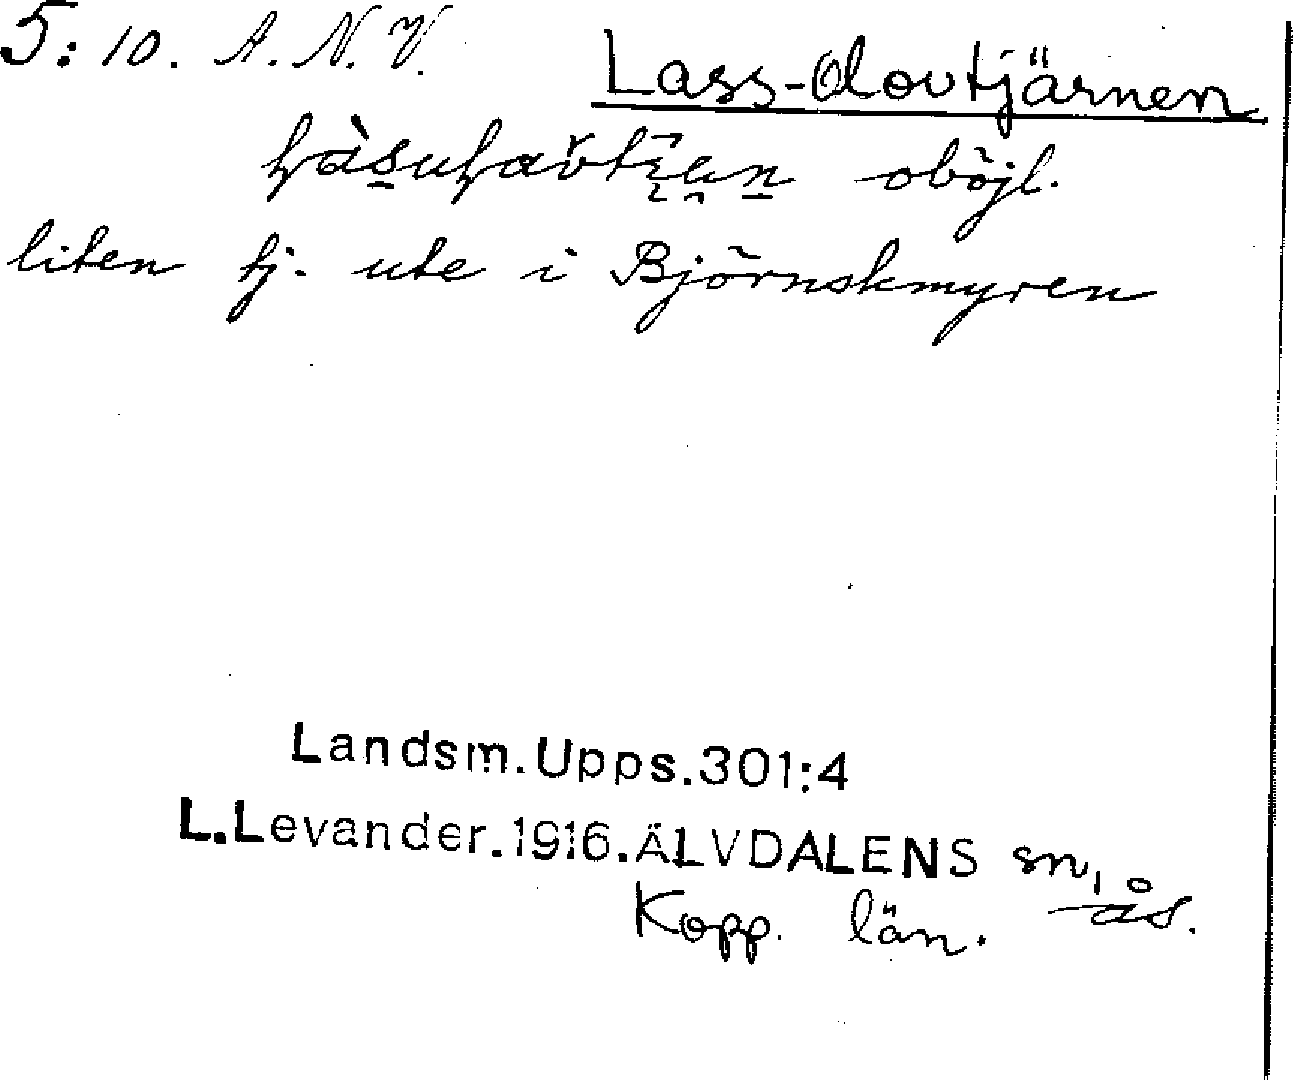 5:10. A. N. V.
Lass-Olovtjärnen
oböjl.
liten tj. ute i Björnskmyren
Landsm.Upps.301:4
L.Levander.1916.ÄLVDALENS sn, ås.
Kopp. län.